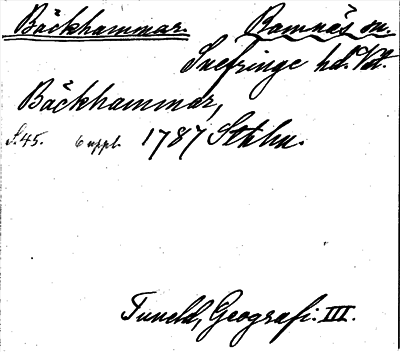 Bäckhammar. Ramnäs sn.
Snefringe hd. Vstm.
Bäckhammar,
S. 45. 6 uppl. 1787 Sthlm.
Tuneld, Geografi. III.